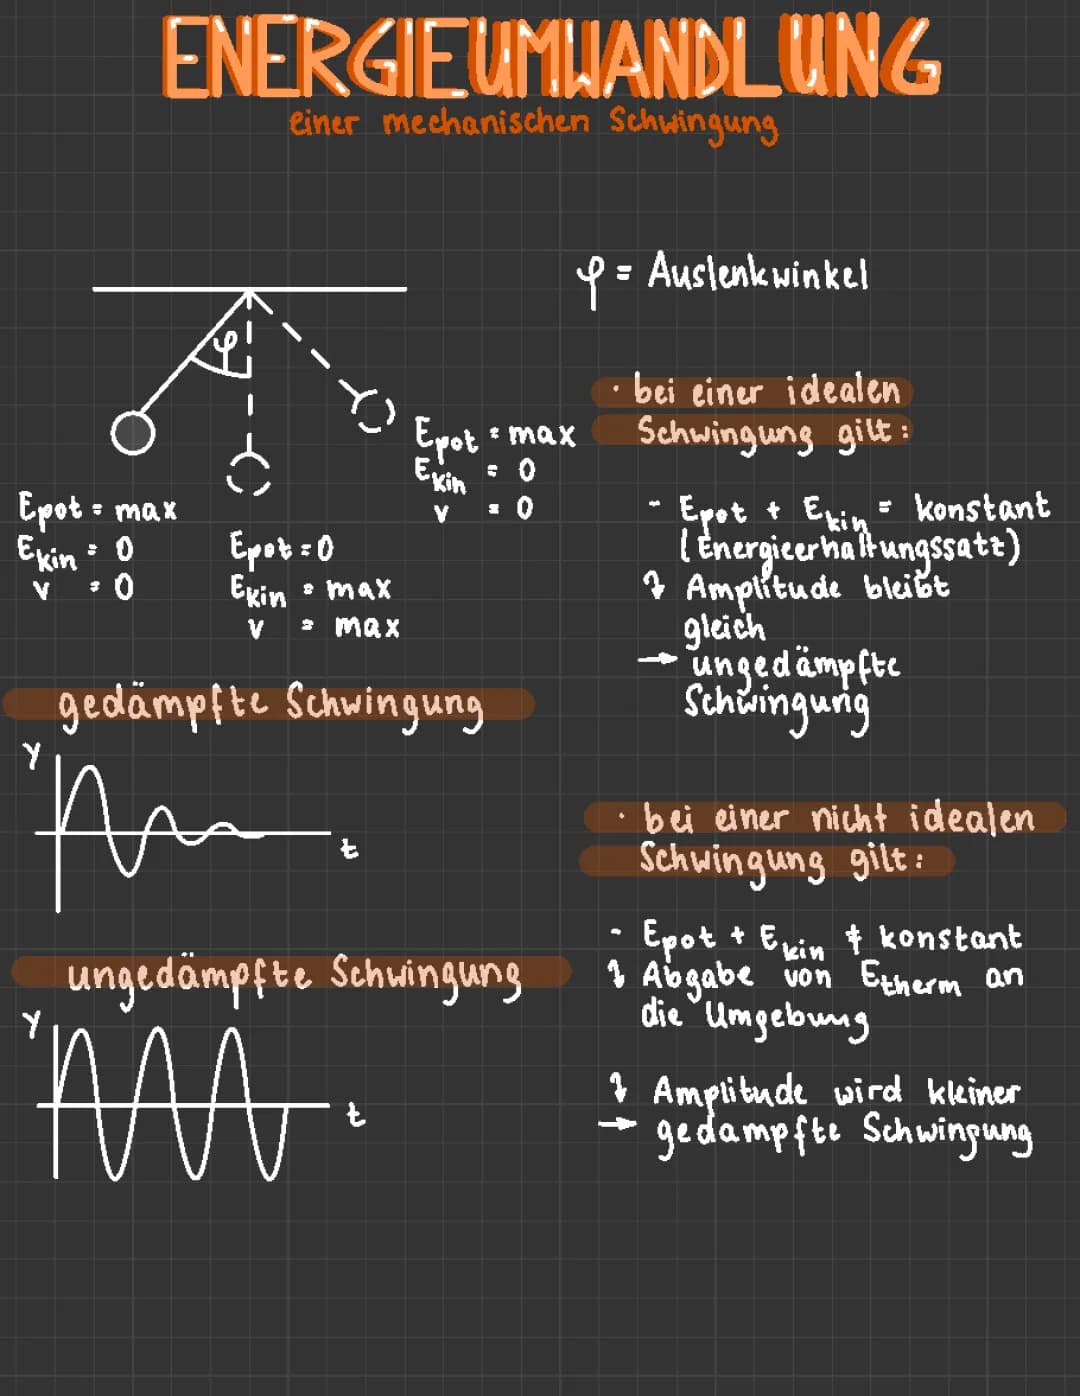 ENERGIEUMWANDLUNG
einer mechanischen Schwingung
φ = Auslenkwinkel
φ
Epot = max
Ekin = 0
v = 0
Epot = 0
Ekin = max
v = max
Epot = max
Ekin = 0
v = 0
· bei einer idealen
Schwingung gilt:
- Epot + Ekin = konstant
(Energieerhaltungssatz)
↴ Amplitude bleibt
gleich
→ ungedämpfte
Schwingung
gedämpfte Schwingung
y
t
ungedämpfte Schwingung
y
t
· bei einer nicht idealen
Schwingung gilt:
- Epot + Ekin ≠ konstant
↴ Abgabe von Etherm an
die Umgebung
↴ Amplitude wird kleiner
→ gedampfte Schwingung